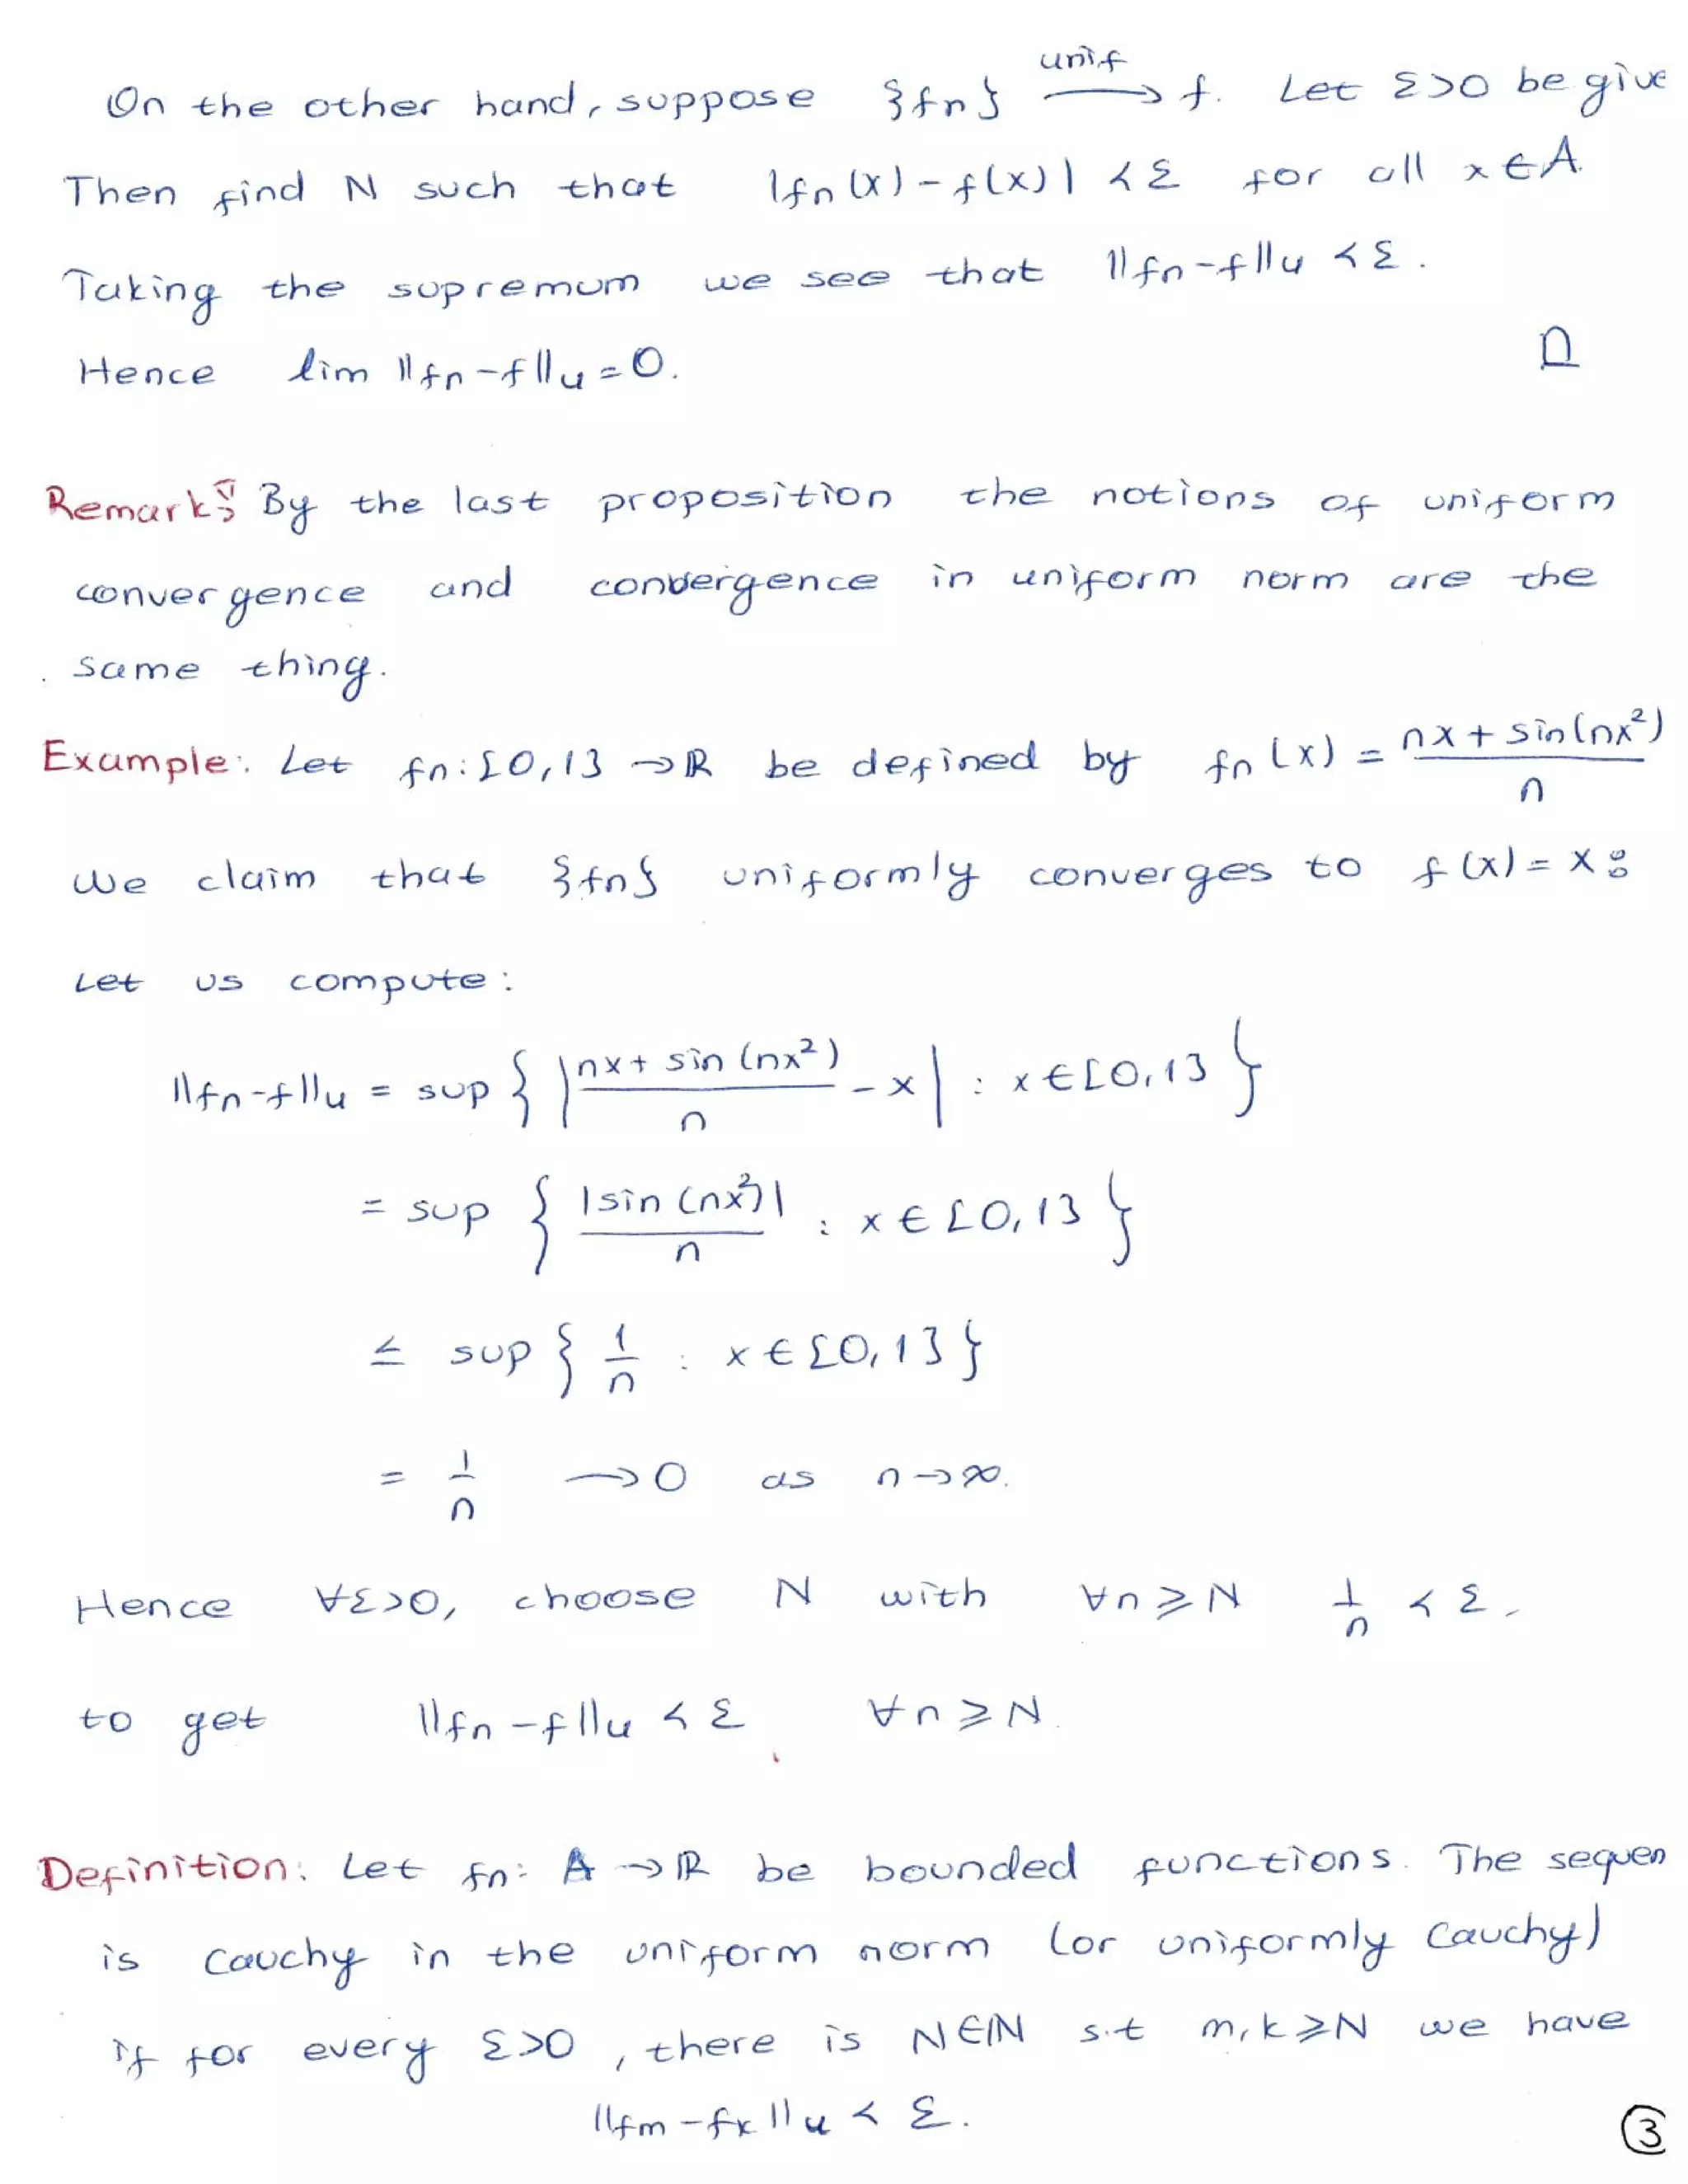 On the other hand, suppose {fn} unif→ f. Let ε>0 be give
Then find N such that |fn(x) - f(x)| < ε for all x ∈ A.
Taking the supremum we see that ||fn-f||u < ε.
Hence lim ||fn-f||u = 0. □
Remark: By the last proposition the notions of uniform
convergence and convergence in uniform norm are the
same thing.
Example: Let fn: [0,1] → ℝ be defined by fn(x) = (nx + sin(nx²))/n
We claim that {fn} uniformly converges to f(x) = x:
Let us compute:
||fn-f||u = sup { |(nx + sin(nx²))/n - x| : x ∈ [0,1] }
= sup { |sin(nx²)|/n : x ∈ [0,1] }
≤ sup { 1/n : x ∈ [0,1] }
= 1/n → 0 as n → ∞.
Hence ∀ε>0, choose N with ∀n ≥ N 1/n < ε,
to get ||fn-f||u < ε ∀n ≥ N.
Definition: Let fn: A → ℝ be bounded functions. The sequen
is Cauchy in the uniform norm (or uniformly Cauchy)
if for every ε>0, there is N∈ℕ s.t m,k ≥ N we have
||fm-fk||u < ε.
3